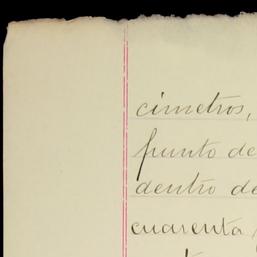 cimetros,
punto de
dentro de
cuarenta